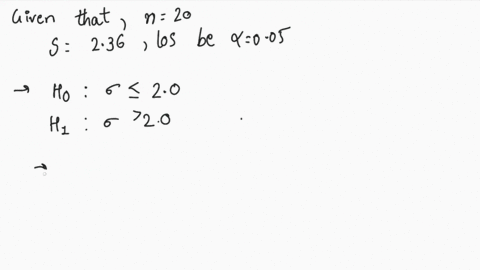 Given that, n=20
S = 2.36, los be α=0.05
→ H₀ : σ ≤ 2.0
H₁ : σ > 2.0
→